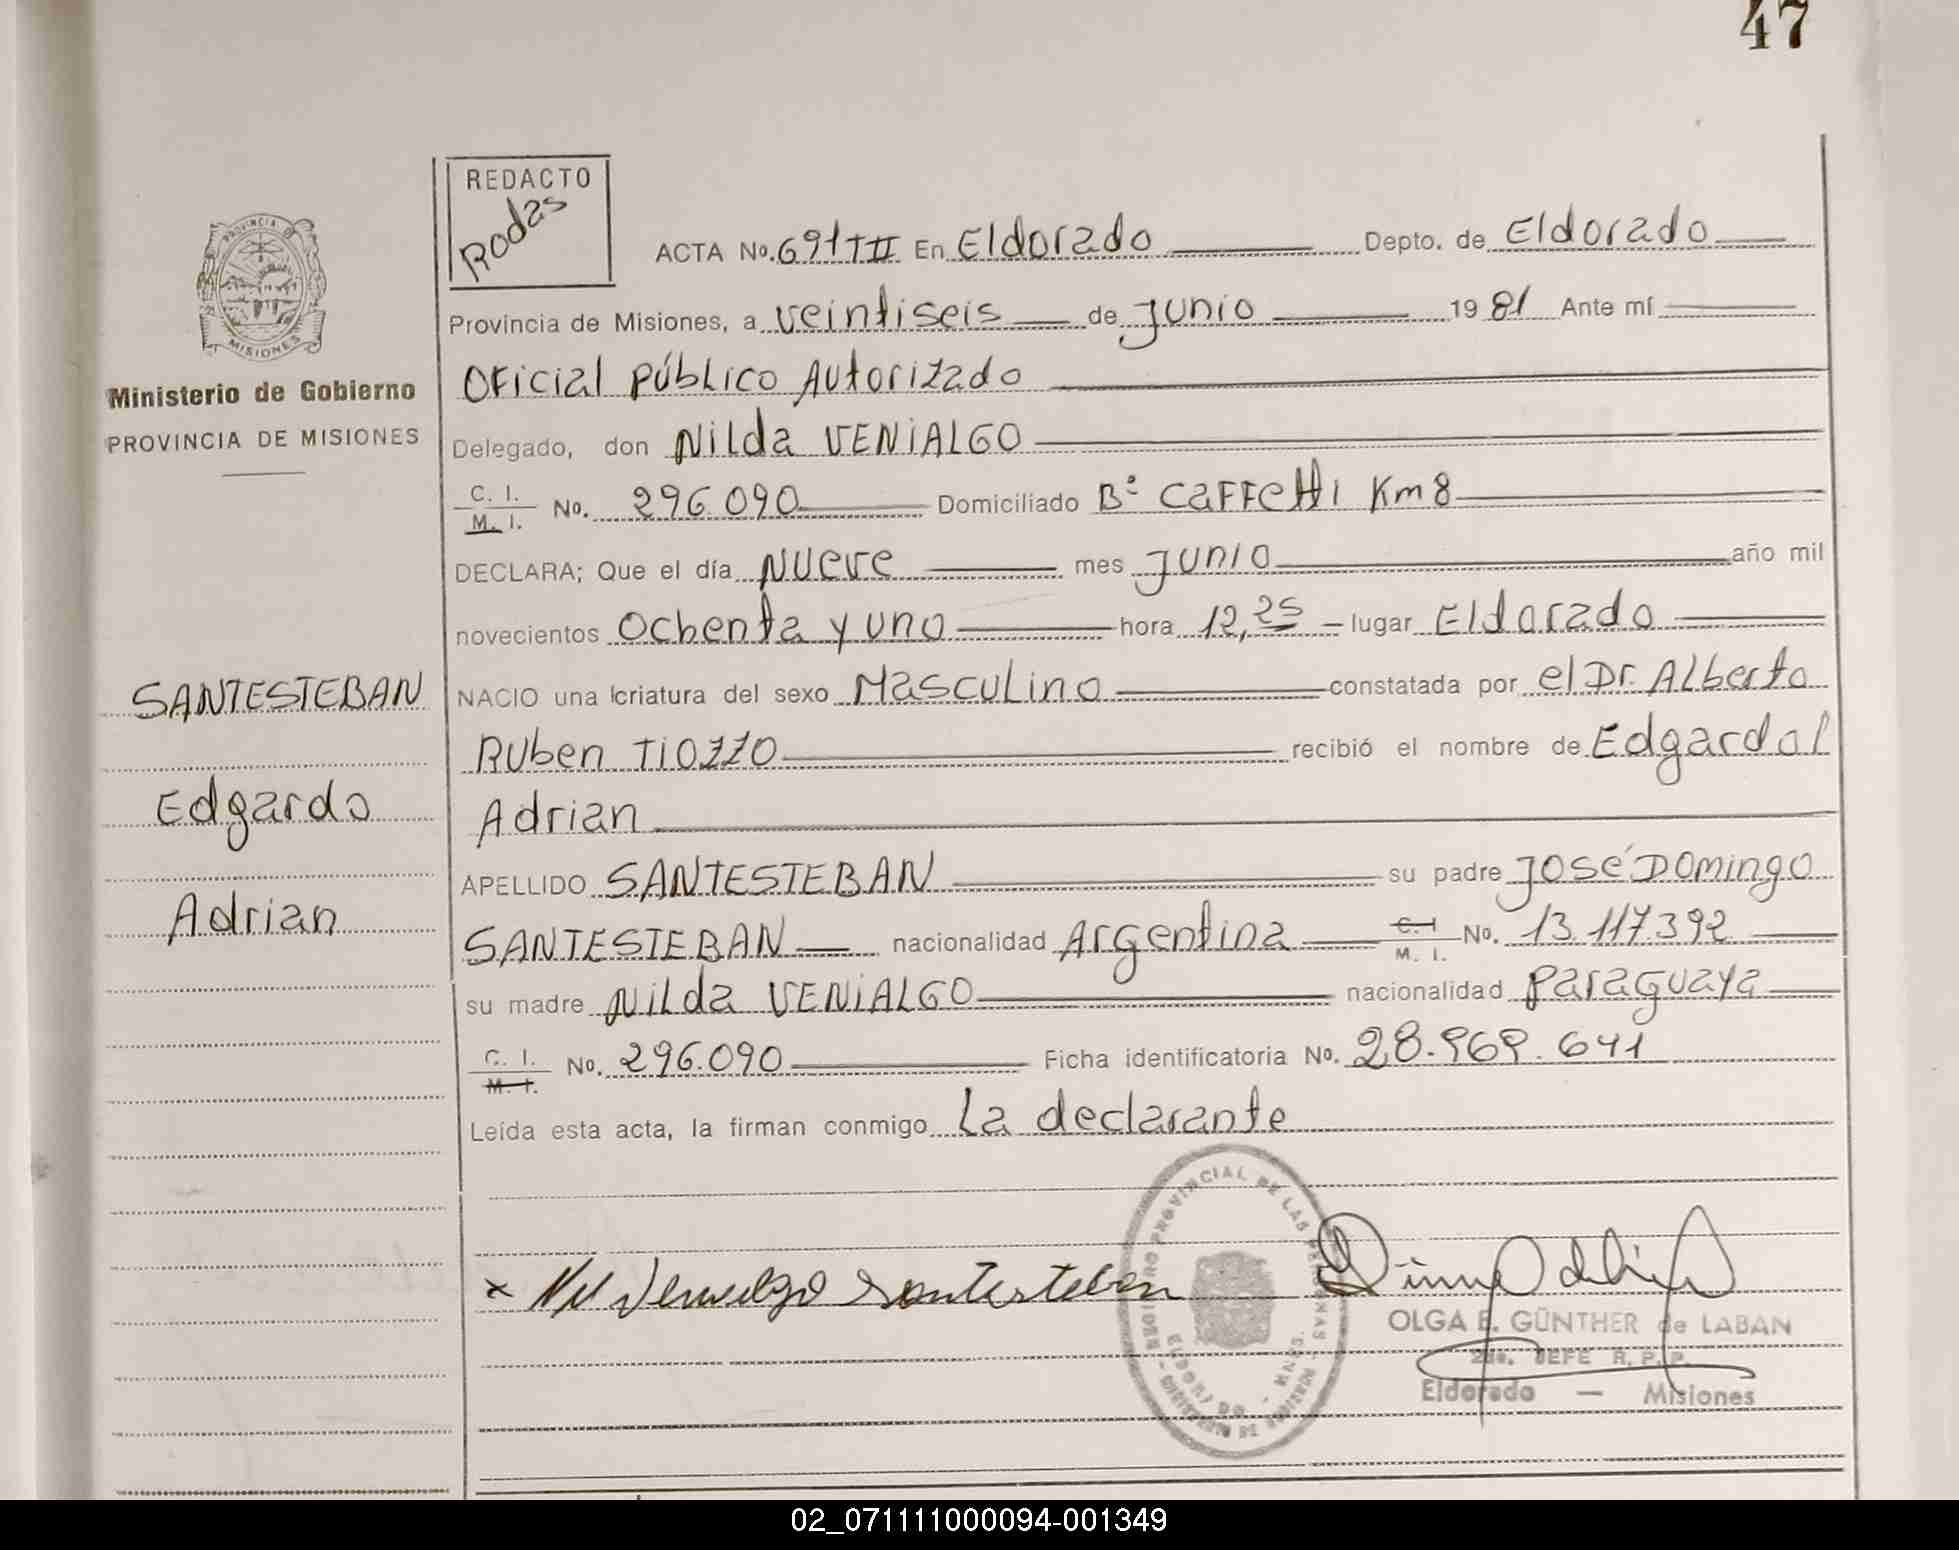 47
REDACTO
Rodas
ACTA No. 691 T II En Eldorado Depto. de Eldorado
Provincia de Misiones, a veintiseis de Junio 1981 Ante mí
Oficial Público Autorizado
Delegado, don Nilda VENIALGO
C. I.
M. I. No. 296.090 Domiciliado Bº Caffetti Km 8
DECLARA; Que el día Nueve mes Junio año mil
novecientos Ochenta y uno hora 12,25 lugar Eldorado
NACIO una criatura del sexo Masculino constatada por el Dr. Alberto
Ruben TIOZZO recibió el nombre de Edgardo
Adrian
APELLIDO SANTESTEBAN su padre José Domingo
SANTESTEBAN nacionalidad Argentina C. I
M. I. No. 13.117.392
su madre Nilda VENIALGO nacionalidad Paraguaya
C. I.
M. I. No. 296.090 Ficha identificatoria No. 28.969.641
Leída esta acta, la firman conmigo La declarante
PROVINCIA DE
MISIONES
Ministerio de Gobierno
PROVINCIA DE MISIONES
SANTESTEBAN
Edgardo
Adrian
x Venialgo Santesteban
REGISTRO PROVINCIAL DE LAS PERSONAS
ELDORADO - MNES.
OLGA E. GÜNTHER de LABAN
2do. JEFE R. P. P.
Eldorado — Misiones
02_071111000094-001349